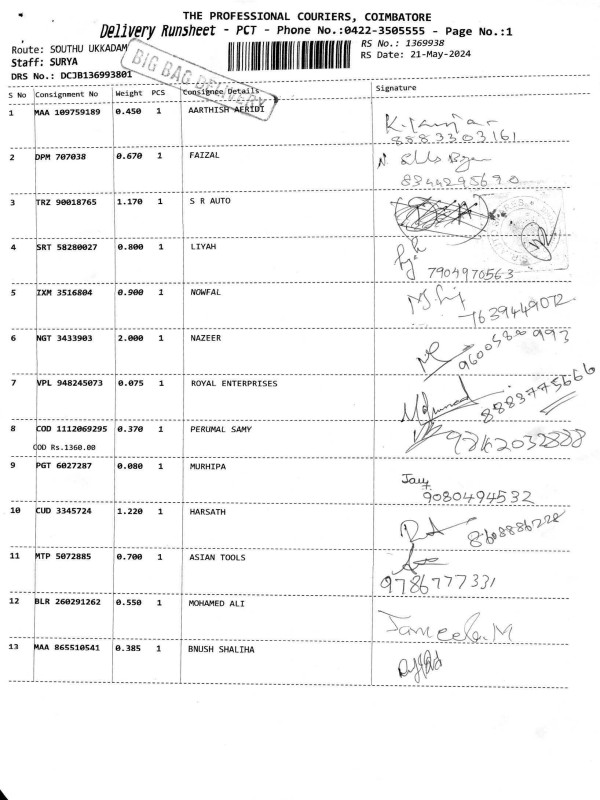 THE PROFESSIONAL COURIERS, COIMBATORE
Delivery Runsheet - PCT - Phone No.:0422-3505555 - Page No.:1
Route: SOUTHU UKKADAM
RS No.: 1369938
Staff: SURYA
RS Date: 21-May-2024
DRS No.: DCJB136993801
BIG BAG DELIVERY
S No Consignment No Weight PCS Consignee Details Signature
1 MAA 109759189 0.450 1 AARTHISH AFRIDI
8883303161
2 DPM 707038 0.670 1 FAIZAL
8344295690
3 TRZ 90018765 1.170 1 S R AUTO
4 SRT 58280027 0.800 1 LIYAH
7904970563
5 IXM 3516804 0.900 1 NOWFAL
7639449072
6 NGT 3433903 2.000 1 NAZEER
9600580993
7 VPL 948245073 0.075 1 ROYAL ENTERPRISES
Mohmmed 8883775666
8 COD 1112069295 0.370 1 PERUMAL SAMY
COD Rs.1360.00
9 PGT 6027287 0.080 1 MURHIPA
9080494532
10 CUD 3345724 1.220 1 HARSATH
8608886228
11 MTP 5072885 0.700 1 ASIAN TOOLS
9786777331
12 BLR 260291262 0.550 1 MOHAMED ALI
Jameela.M
13 MAA 865510541 0.385 1 BNUSH SHALIHA